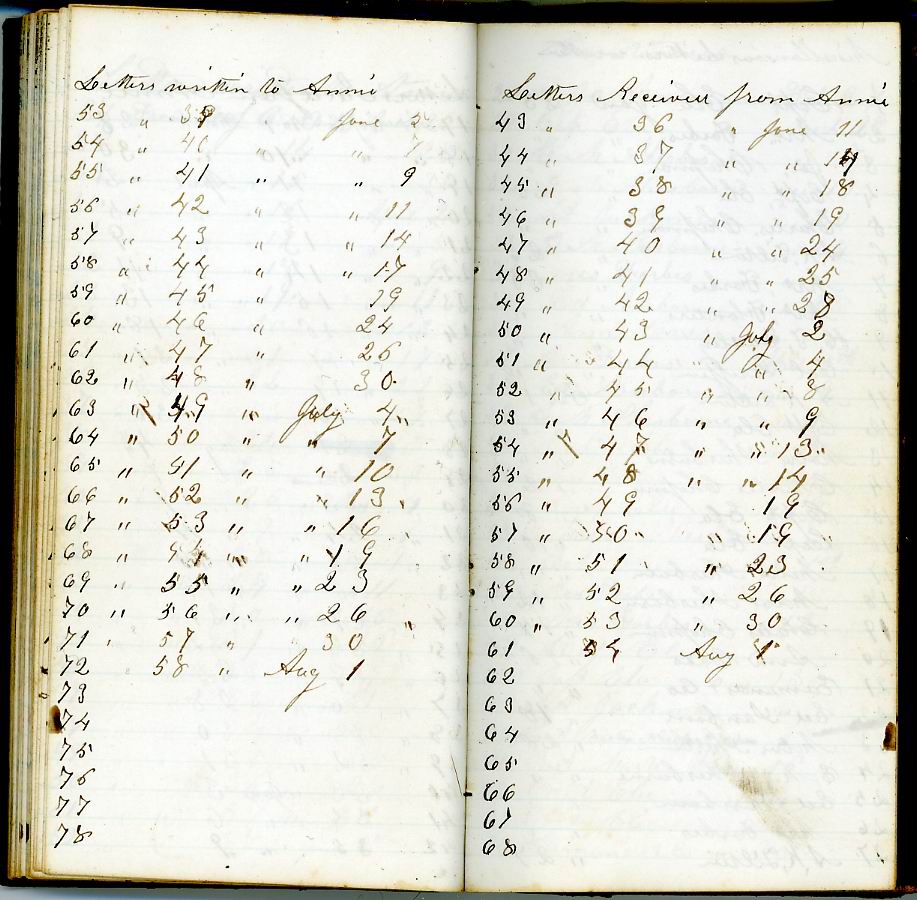 Letters written to Annie
53 " 39 June 5
54 " 40 " " 7
55 " 41 " " 9
56 " 42 " 11
57 " 43 " " 14
58 " 44 " " 17
59 " 45 " 19
60 " 46 " 24
61 " 47 " 26
62 " 48 " 30
63 " 49 " July 4
64 " 50 " " 7
65 " 51 " " 10
66 " 52 " " 13
67 " 53 " " 16
68 " 54 " " 19
69 " 55 " " 23
70 " 56 " " 26
71 " 57 " " 30
72 " 58 " Aug 1
73
74
75
76
77
78
Letters Received from Annie
43 " 36 " June 11
44 " 37 " " 14
45 " 38 " " 18
46 " 39 " " 19
47 " 40 " " 24
48 " 41 " " 25
49 " 42 " " 28
50 " 43 " July 2
51 " 44 " " 4
52 " 45 " " 8
53 " 46 " " 9
54 " 47 " " 13
55 " 48 " " 14
56 " 49 " 19
57 " 50 " 19
58 " 51 " " 23
59 " 52 " 26
60 " 53 " 30
61 54 Aug 1
62
63
64
65
66
67
68